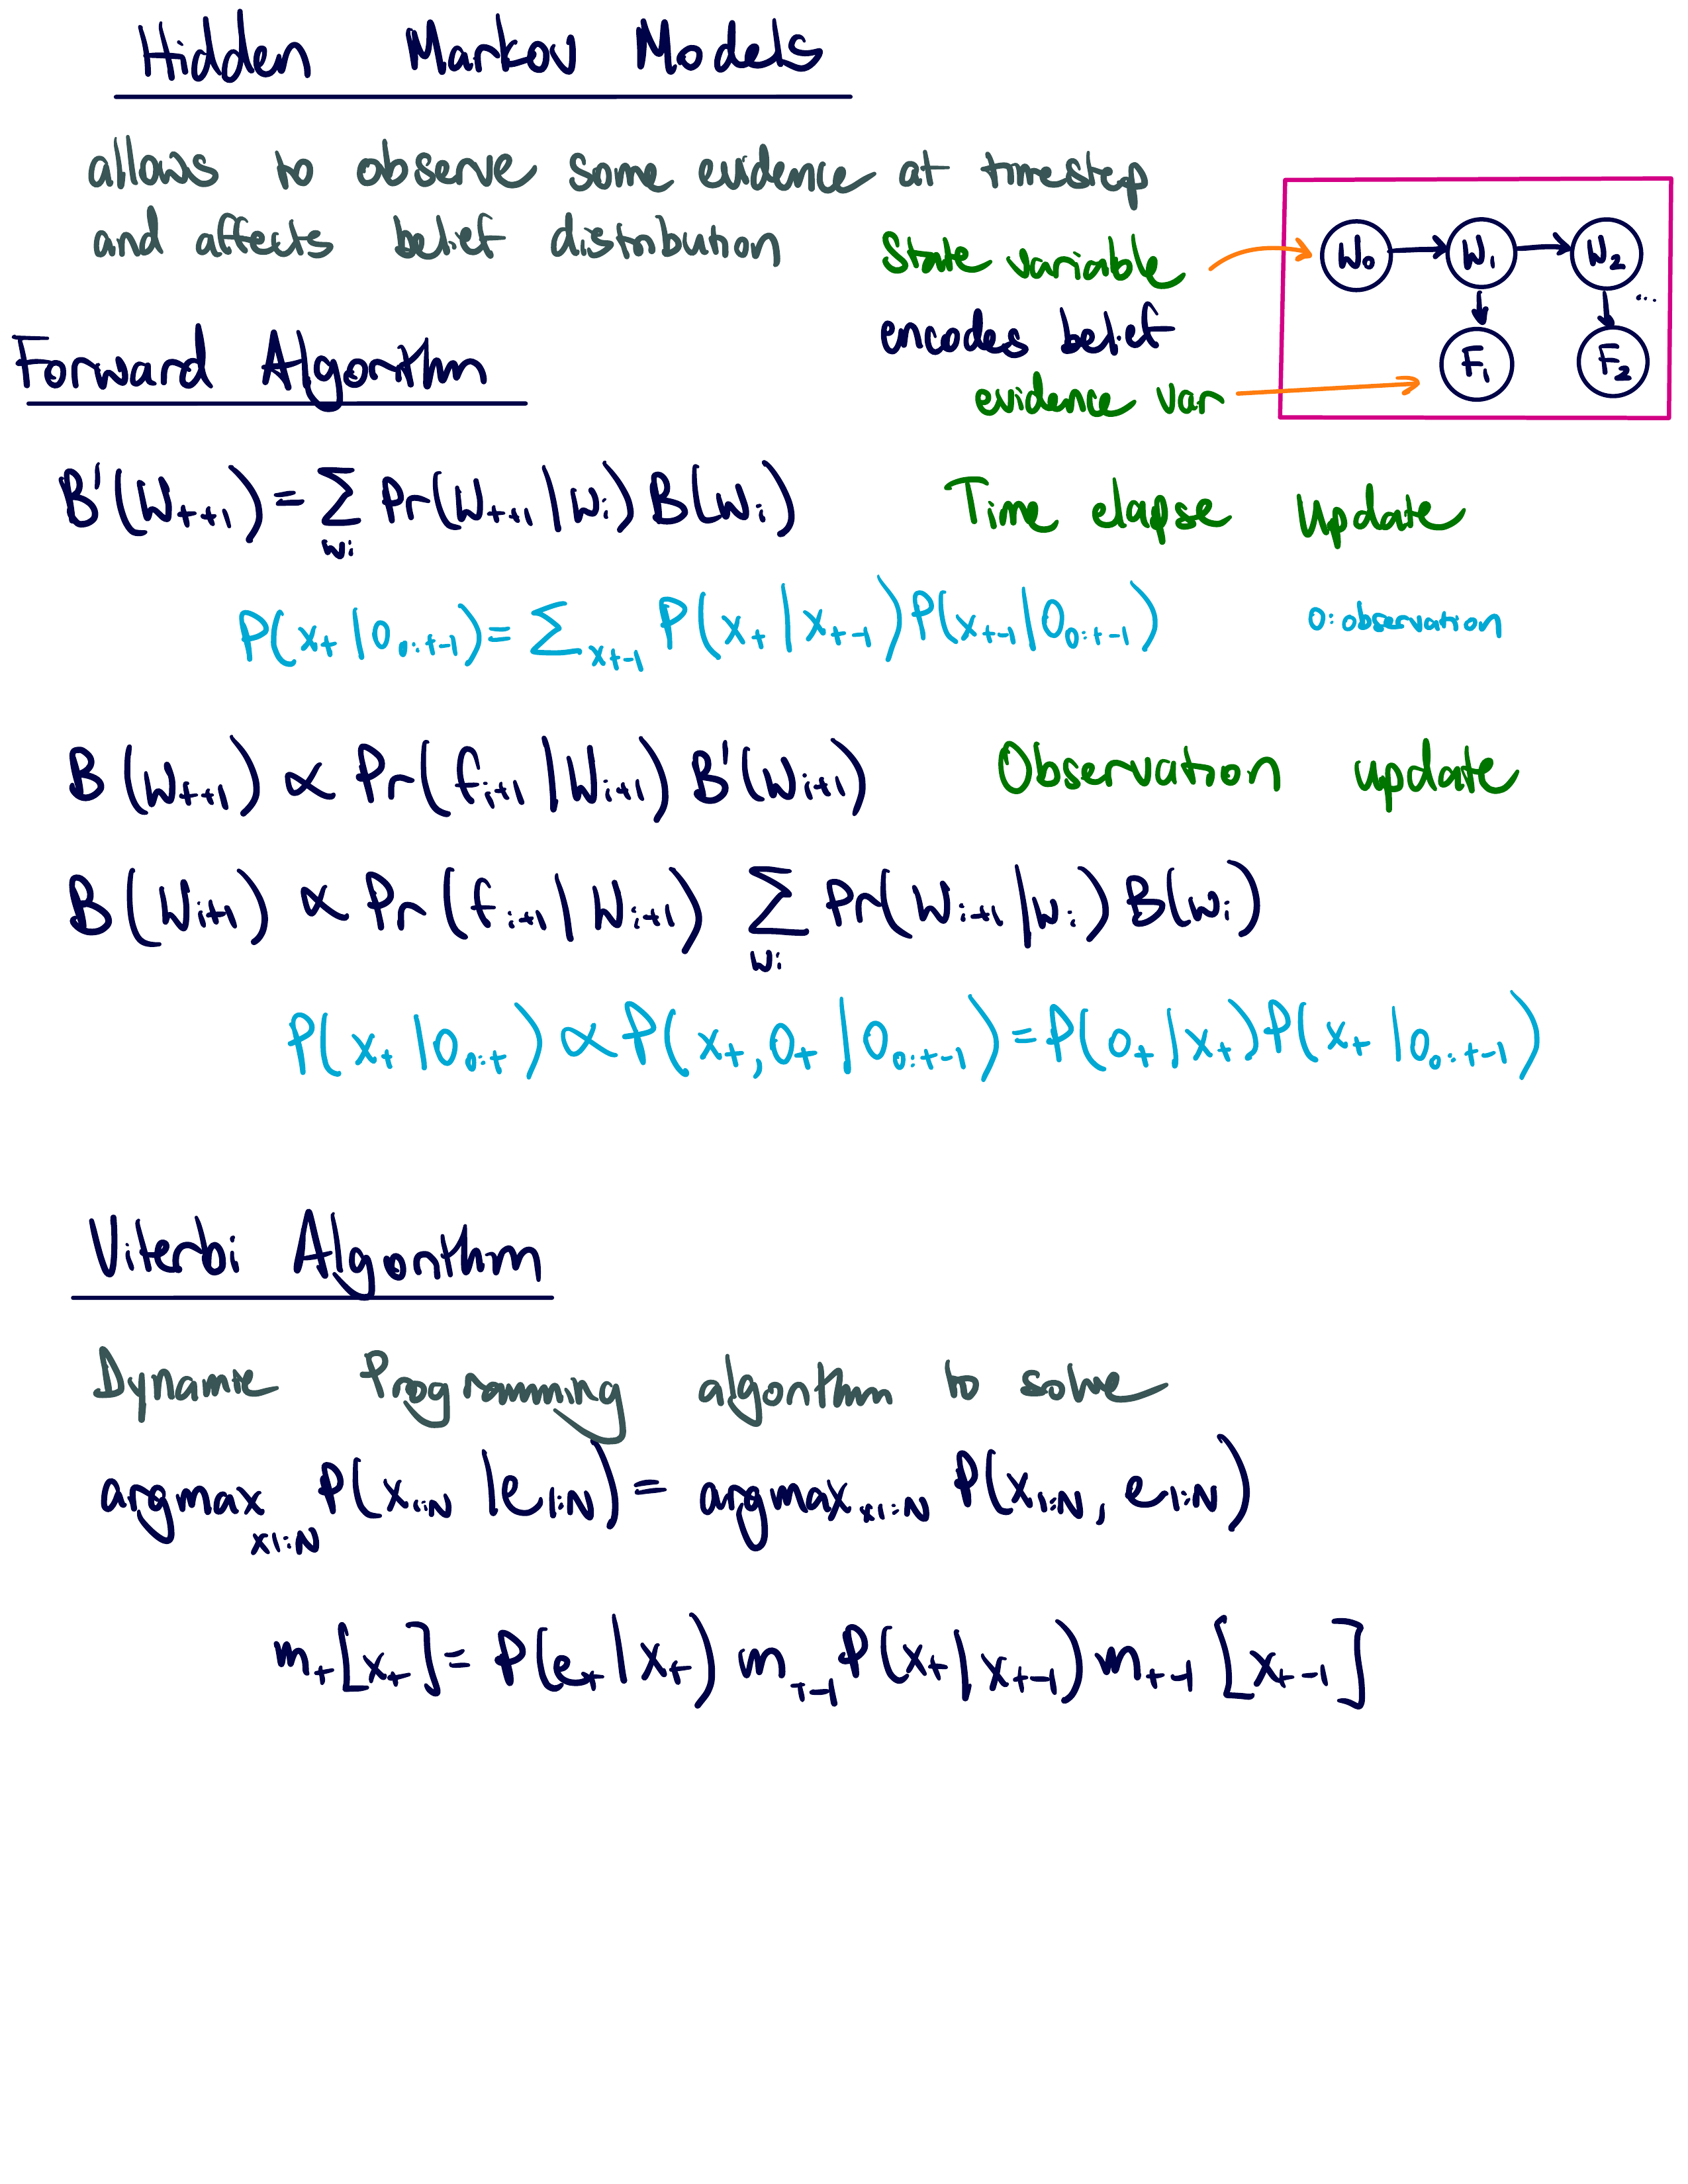 Hidden Markov Models
allows to observe some evidence at timestep
and affects belief distribution
State variable
encodes belief
evidence var
W₀ W₁ W₂ ...
F₁ F₂
Forward Algorithm
B'(W_{t+1}) = Σ_{w_i} Pr(W_{t+1} | w_i) B(w_i)
Time elapse Update
P(x_t | o_{0:t-1}) = Σ_{x_{t-1}} P(x_t | x_{t-1}) P(x_{t-1} | o_{0:t-1})
o: observation
B(W_{t+1}) ∝ Pr(f_{i+1} | W_{i+1}) B'(W_{i+1})
Observation update
B(W_{i+1}) ∝ Pr(f_{i+1} | W_{i+1}) Σ_{w_i} Pr(W_{i+1} | w_i) B(w_i)
P(x_t | o_{0:t}) ∝ P(x_t, o_t | o_{0:t-1}) = P(o_t | x_t) P(x_t | o_{0:t-1})
Viterbi Algorithm
Dynamic Programming algorithm to solve
argmax_{x1:N} P(x_{1:N} | e_{1:N}) = argmax_{x1:N} P(x_{1:N}, e_{1:N})
m_t[x_t] = P(e_t | x_t) m_{t-1} P(x_t | x_{t-1}) m_{t-1}[x_{t-1}]